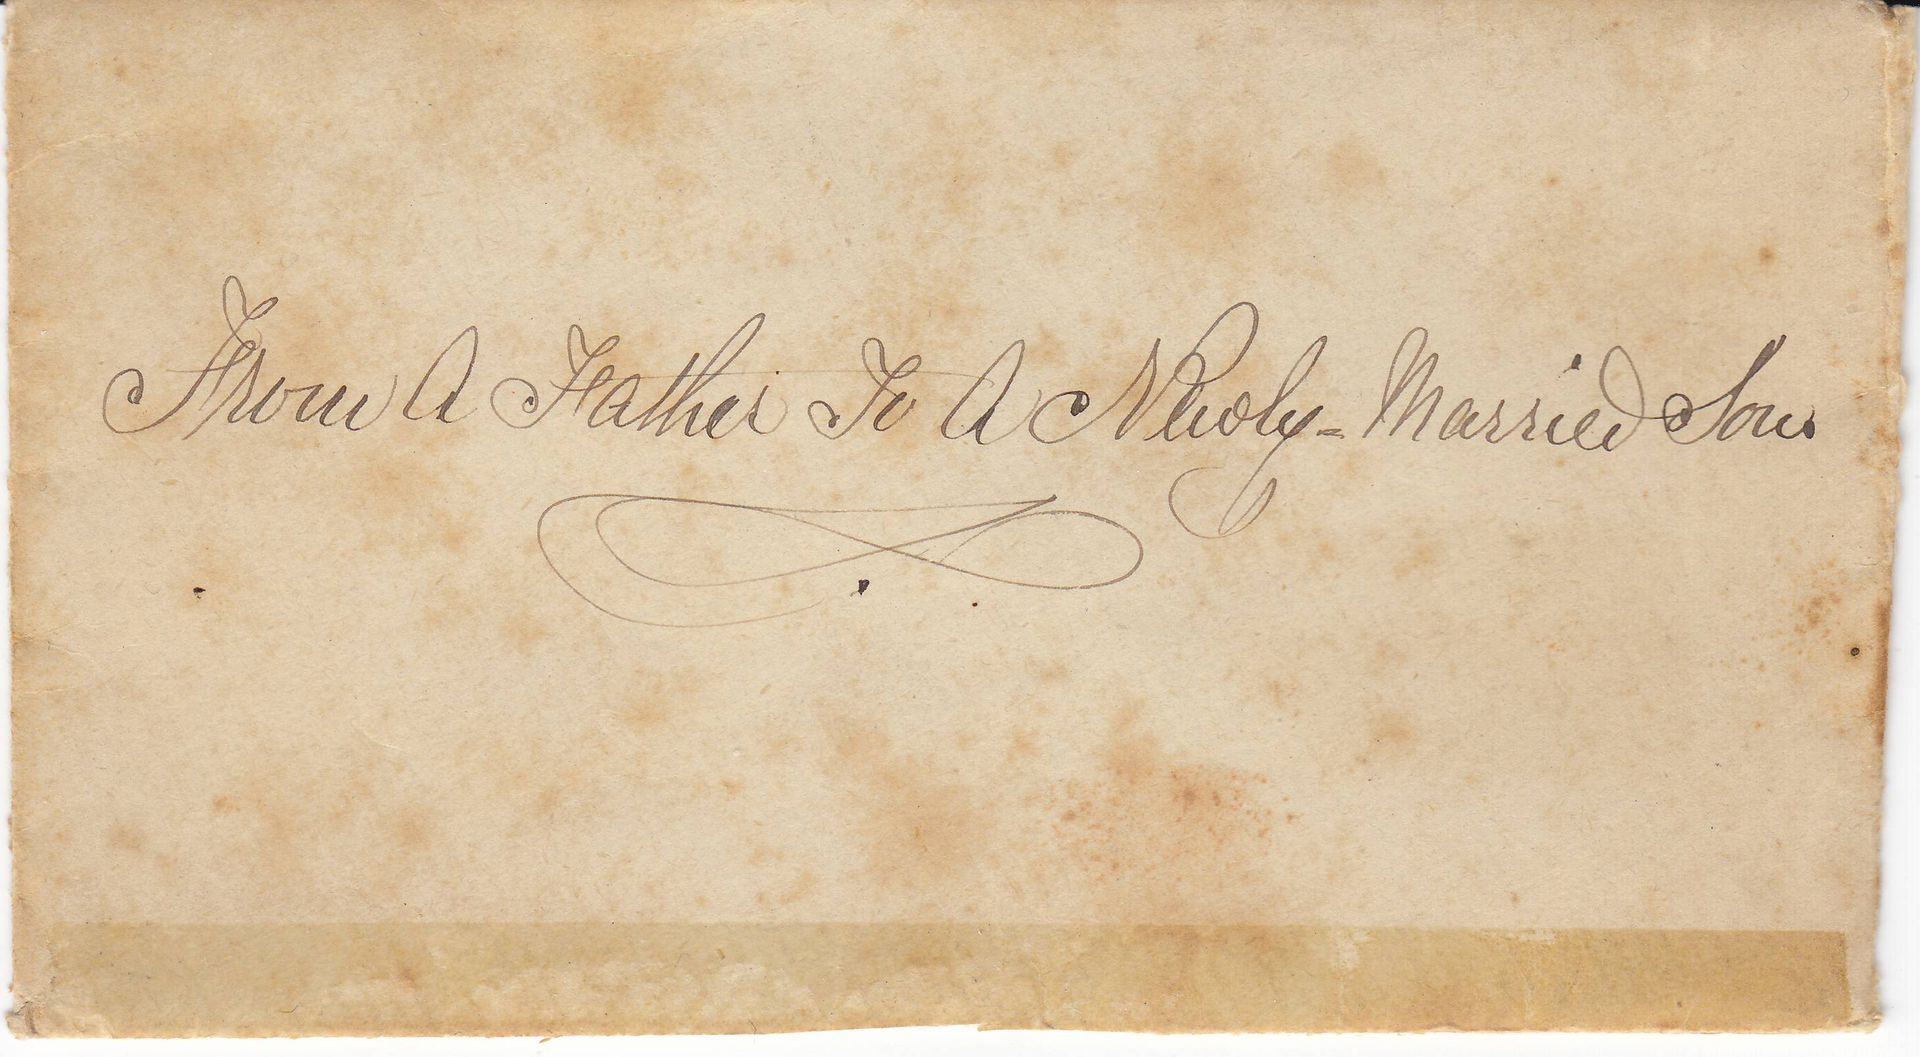 From A Father To A Newly-Married Son.